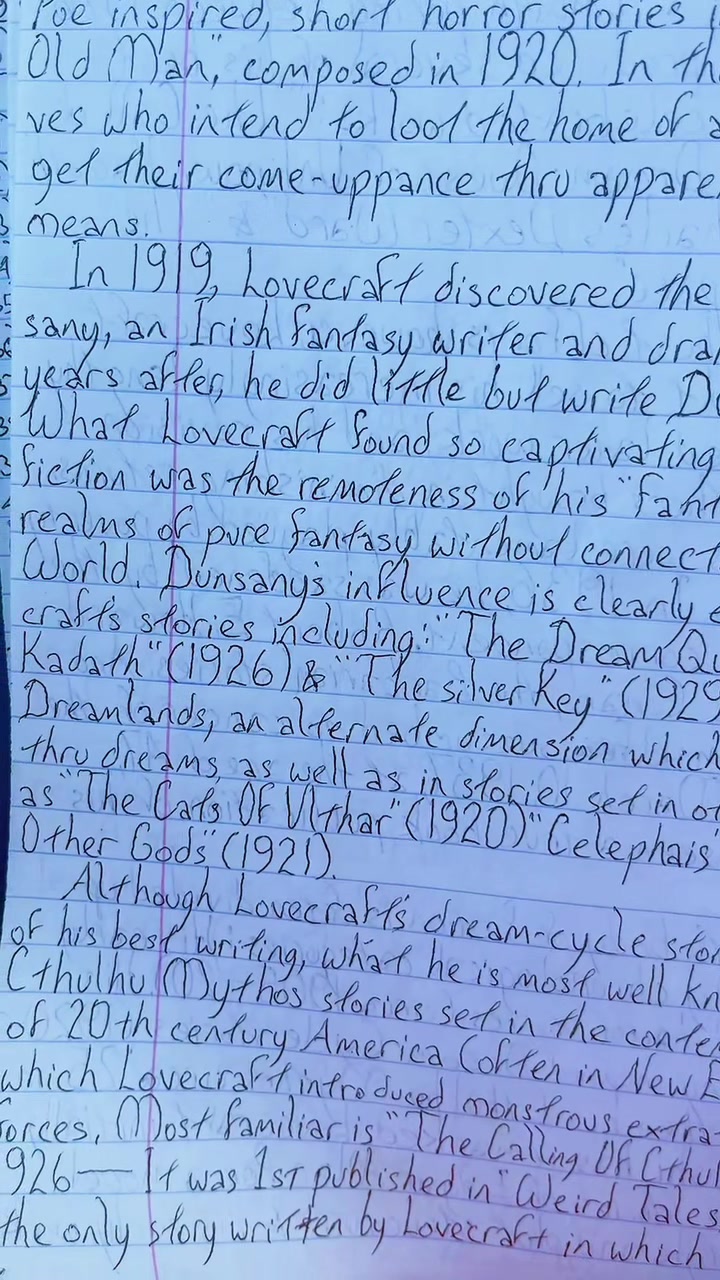 Poe inspired, short horror stories
Old Man", composed in 1920. In th
ves who intend to loot the home of a
get their come-uppance thru appare
means.
In 1919, Lovecraft discovered the
sany, an Irish fantasy writer and dra
years after, he did little but write Du
What Lovecraft found so captivating
fiction was the remoteness of his "fant
realms of pure fantasy without connect
World. Dunsany's influence is clearly e
craft's stories including: "The Dream Qu
Kadath" (1926) & "The silver Key" (1929
Dreamlands, an alternate dimension which
thru dreams, as well as in stories set in ot
as "The Cats Of Ulthar" (1920) "Celephais"
Other Gods" (1921).
Although Lovecraft's dream-cycle stor
of his best writing, what he is most well kn
Cthulhu Mythos stories set in the contem
of 20th century America (often in New E
which Lovecraft introduced monstrous extra-
forces. Most familiar is "The Calling Of Cthul
926 — It was 1ST published in "Weird Tales
the only story written by Lovecraft in which